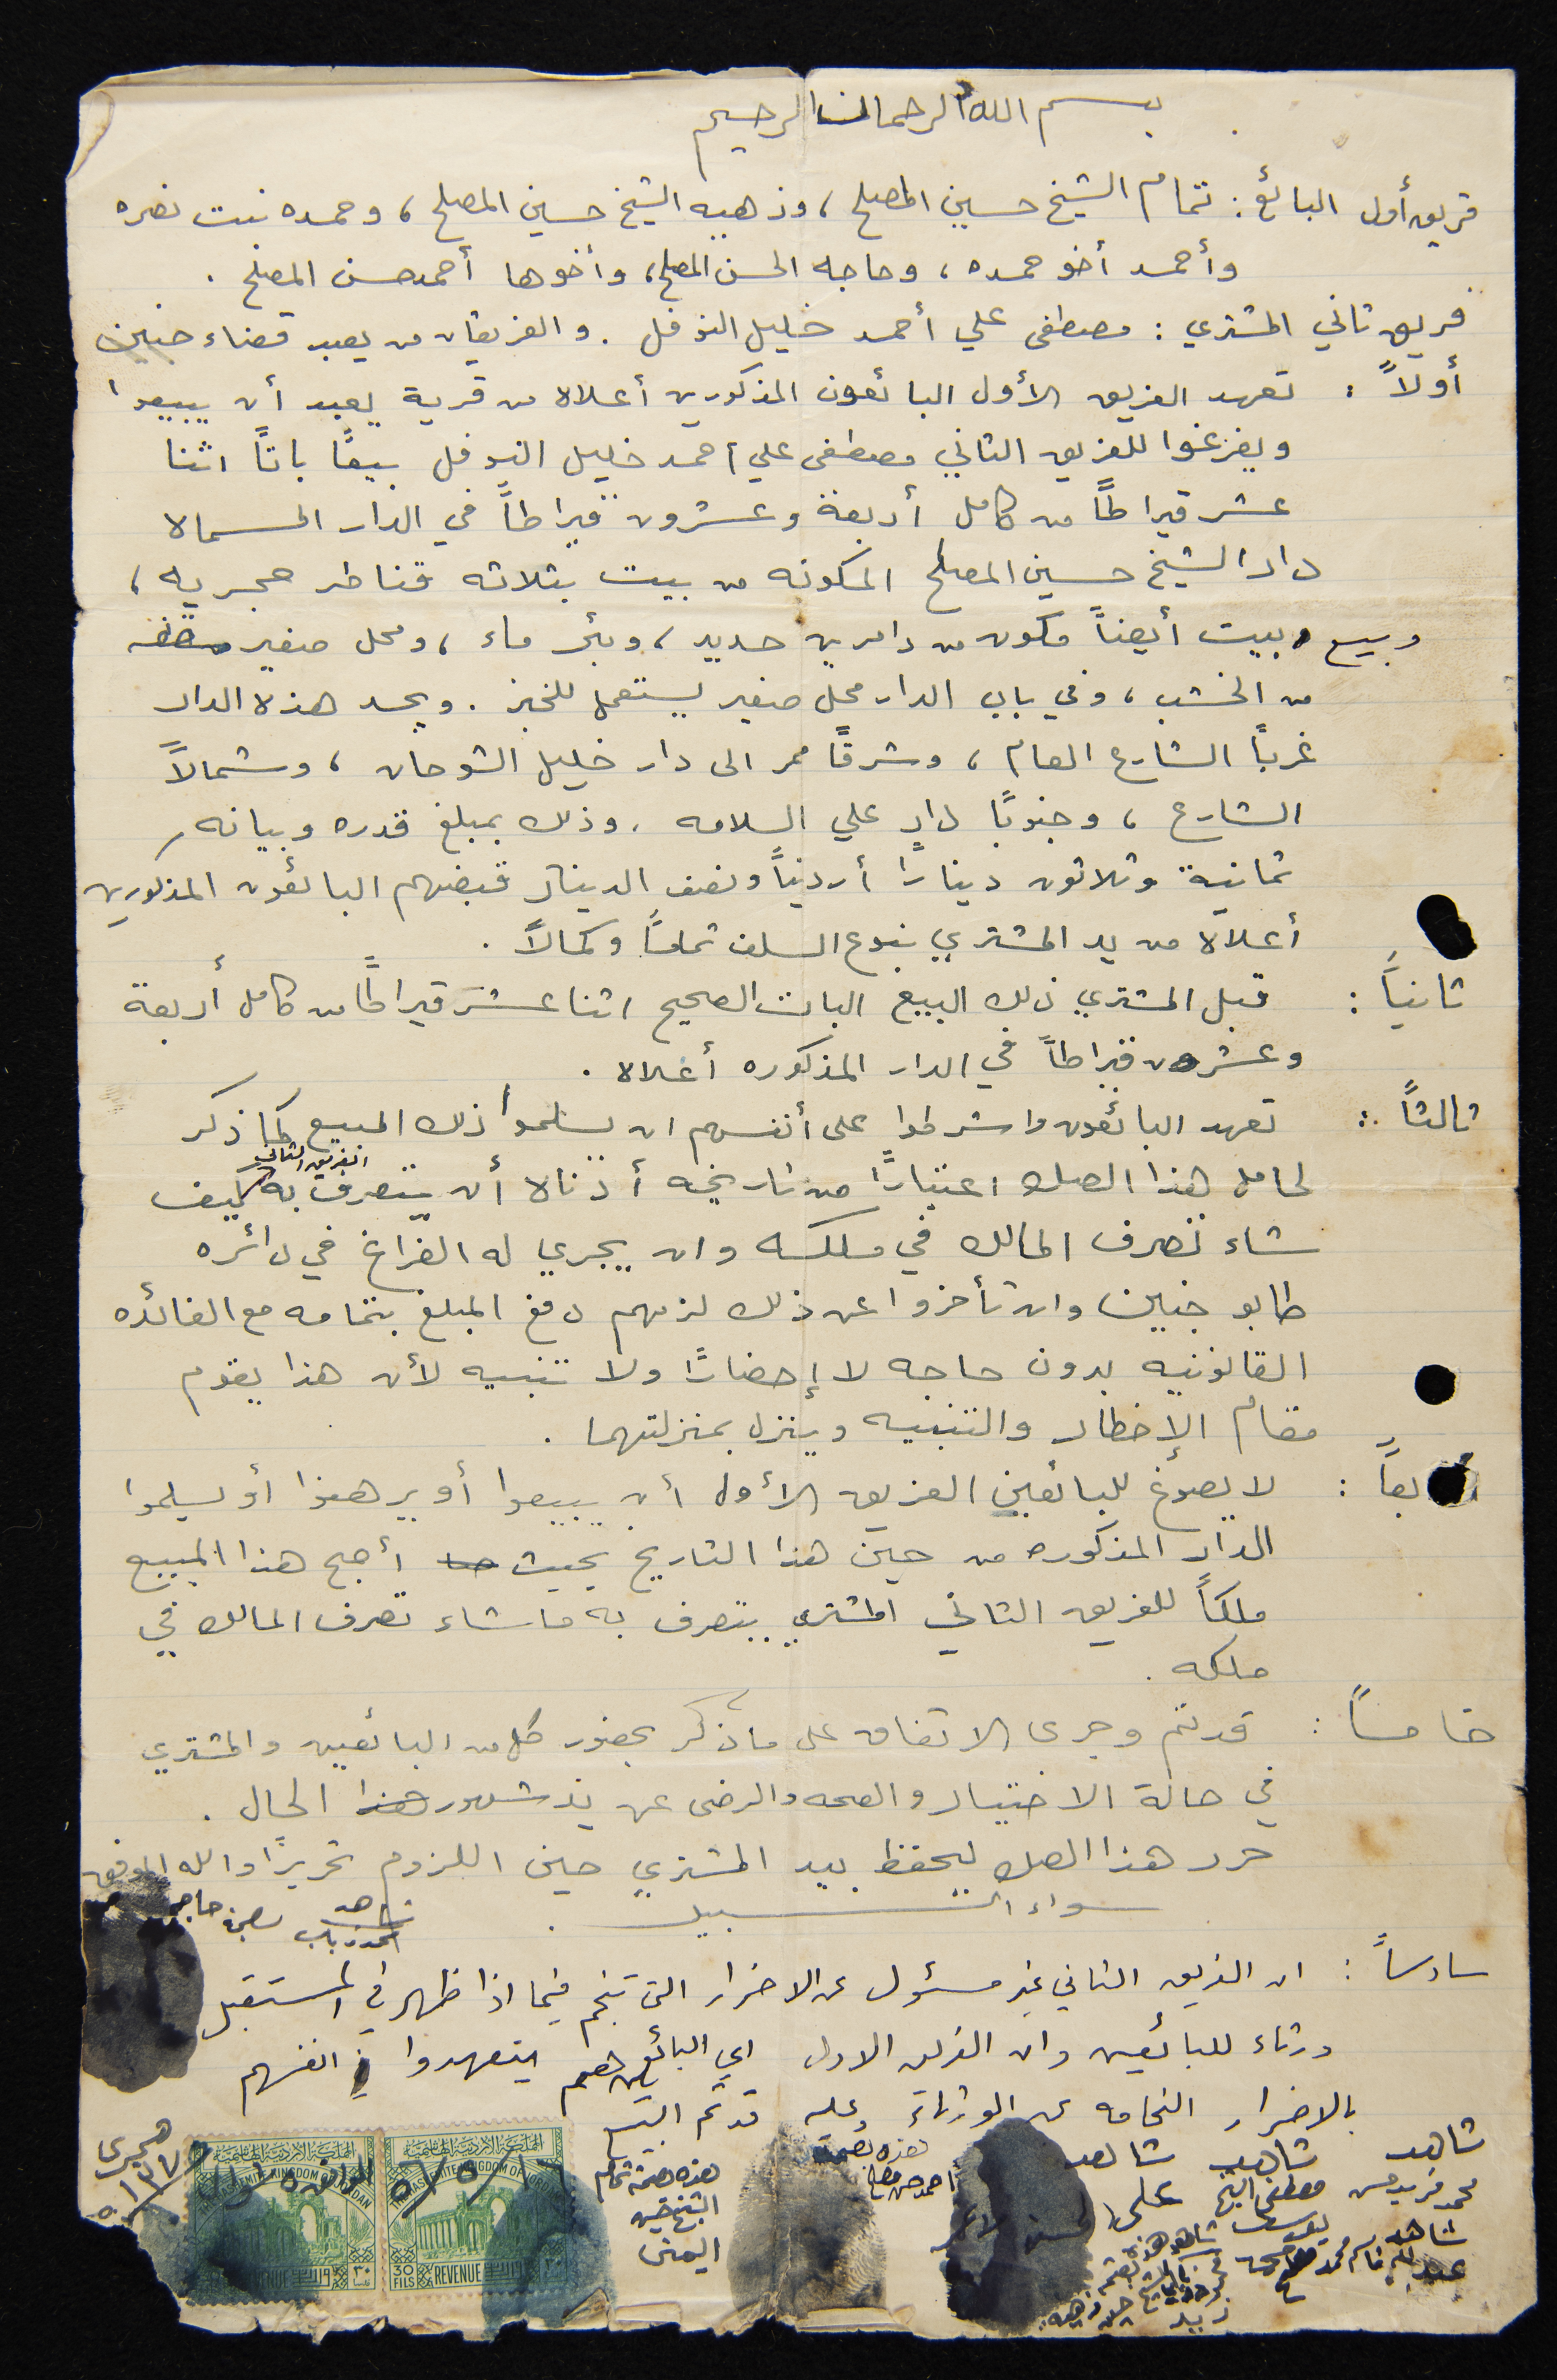 بسم الله الرحمان الرحيم
فريق أول البائع : تمام الشيخ حسين المصلح ، وذهبيه الشيخ حسين المصلح ، وحمده بنت نصره
وأحمد أخو حمده ، وحاجه الحسن المصلح ، وأخوها أحمد حسن المصلح .
فريق ثاني المشتري : مصطفى علي أحمد خليل النوفل . والفريقان من يعبد قضاء جنين
أولاً : تعهد الفريق الأول البائعون المذكورين أعلاه من قرية يعبد أن يبيعوا
ويفرغوا للفريق الثاني مصطفى علي أحمد خليل النوفل بيعًا باتًا اثنا
عشر قيراطًا من كامل أربعة وعشرون قيراطاً في الدار المسماه
دار الشيخ حسين المصلح المكونه من بيت بثلاثه قناطر حجريه ،
وبيع وبيت أيضاً مكون من دامرين حديد ، وبئر ماء ، ومحل صغير سقفه
من الخشب ، وفي باب الدار محل صغير يستعمل للخبز . ويحد هذه الدار
غربًا الشارع العام ، وشرقًا ممر الى دار خليل الشوحان ، وشمالاً
الشارع ، وجنوبًا دار علي السلامه . وذلك بمبلغ قدره وبيانه
ثمانية وثلاثون دينارًا أردنياً ونصف الدينار قبضهم البائعون المذكورين
أعلاه من يد المشتري بنوع السلف تمامًا وكمالاً .
ثانياً : قبل المشتري ذلك البيع البات الصحيح اثنا عشر قيراطًا من كامل أربعة
وعشرون قيراطاً في الدار المذكوره أعلاه .
ثالثاً : تعهد البائعون واشرطوا على أنفسهم ان يسلموا ذلك المبيع كما ذكر
الفريق الثاني
لحامل هذا الصك اعتبارًا من تاريخه أدناه أن يتصرف به كيف
شاء تصرف المالك في ملكه وان يجري له الفراغ في دائره
طابو جنين وان تأخروا عن ذلك لزمهم دفع المبلغ بتمامه مع الفائده
القانونيه بدون حاجه لا إحضارًا ولا تنبيه لأن هذا يقوم
مقام الإخطار والتنبيه وينزل بمنزلتهما .
بعاً : لا يصوغ للبائعين الفريق الأول أن يبيعوا أو يرهنوا أو يسلموا
الدار المذكوره من حين هذا التاريخ بحيث أصبح هذا المبيع
ملكاً للفريق الثاني المشتري يتصرف به ما شاء تصرف المالك في
ملكه .
خامساً : قد تم وجرى الاتفاق على ما ذكر بحضور كل من البائعين والمشتري
في حالة الاختيار والصحه والرضى عن يد شهود هذا الحال .
حرر هذا الصك ليحفظ بيد المشتري حين اللزوم تحريرًا والله الموفق
سواء السبيل .
شاهد
بصمة حاجه
سادساً : ان الفريق الثاني غير مسئول عن الاضرار التي تنجم فيما اذا ظهر في المستقبل
ورثاء للبائعين وان الفريق الاول اي البائعين يتعهدوا في انفسهم
بالاضرار الناجمه عن الورثاء وعليه قد تم البيع
شاهد شاهد شاهد
محمد فريد حسن
مصطفى الشيخ
علي
هذه بصمة
أحمد حسن مصلح
هذه بصمة تمام
الشيخ حسين
اليمنى
شاهد
شاهد
هجري
١٦/٥/٥٦
الموافق ٥ شوال
المملكة الأردنية الهاشمية
THE HASHEMITE KINGDOM OF JORDAN
30 FILS REVENUE ٣٠
المملكة الأردنية الهاشمية
THE HASHEMITE KINGDOM OF JORDAN
REVENUE ٣٠